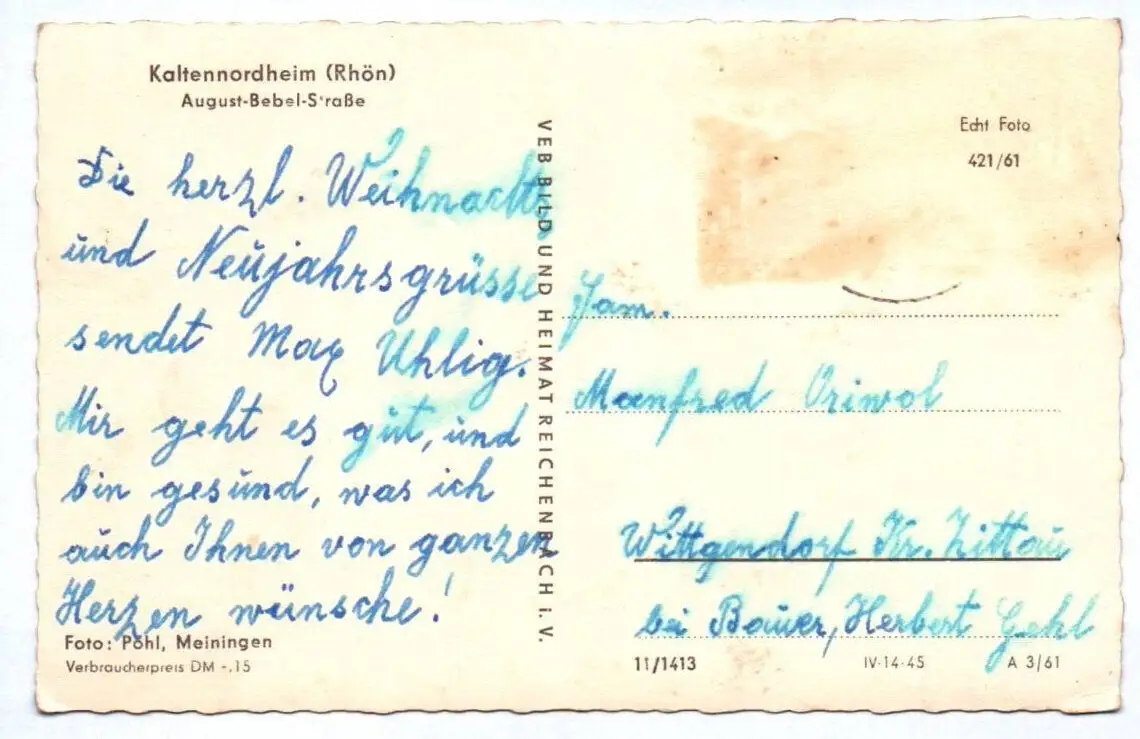 Kaltennordheim (Rhön)
August-Bebel-Straße
Die herzl. Weihnachts
und Neujahrsgrüsse
sendet Max Uhlig.
Mir geht es gut, und
bin gesund, was ich
auch Ihnen von ganzen
Herzen wünsche!
Foto: Pöhl, Meiningen
Verbraucherpreis DM -.15
VEB BILD UND HEIMAT REICHENBACH i. V.
Echt Foto
421/61
Fam.
Manfred Oriwol
Wittgendorf Kr. Zittau
bei Bauer, Herbert Gehl
11/1413 IV-14-45 A 3/61